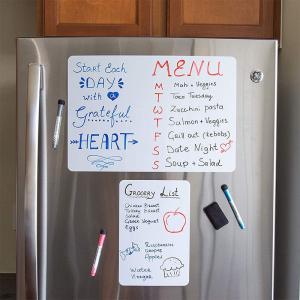 Start Each
DAY
with a
Grateful
HEART
MENU
M Mahi + Veggies
T Taco Tuesday
W Zucchini pasta
T Salmon + Veggies
F Grill out (kebobs)
S Date Night
S Soup + Salad
GROCERY LIST
Chicken Breast
Turkey breast
Salad
Greek Yogurt
Eggs
Grapes
Apples
Water
Vinegar